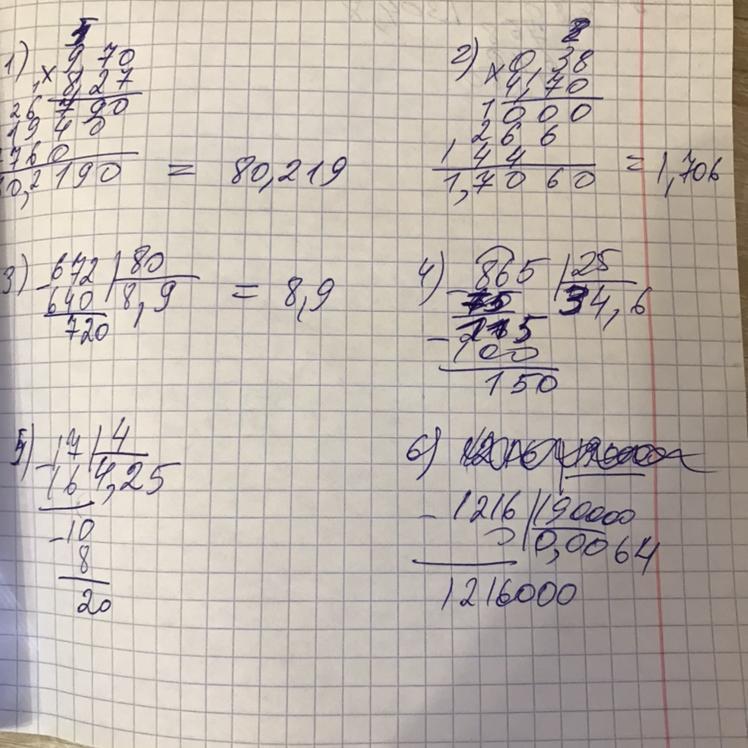 1) 9,70
× 8,27
26 7 90
19 4 0
760
0,2190 = 80,219
2) 0,38
× 4,70
1000
266
144
1,7060 = 1,706
3) 672 | 80
- 640 8,9 = 8,9
720
4) 865 | 25
- 75 34,6
- 115
100
150
5) 17 | 4
- 16 4,25
- 10
8
20
6)
- 1216 | 190000
0 0,0064
1216000